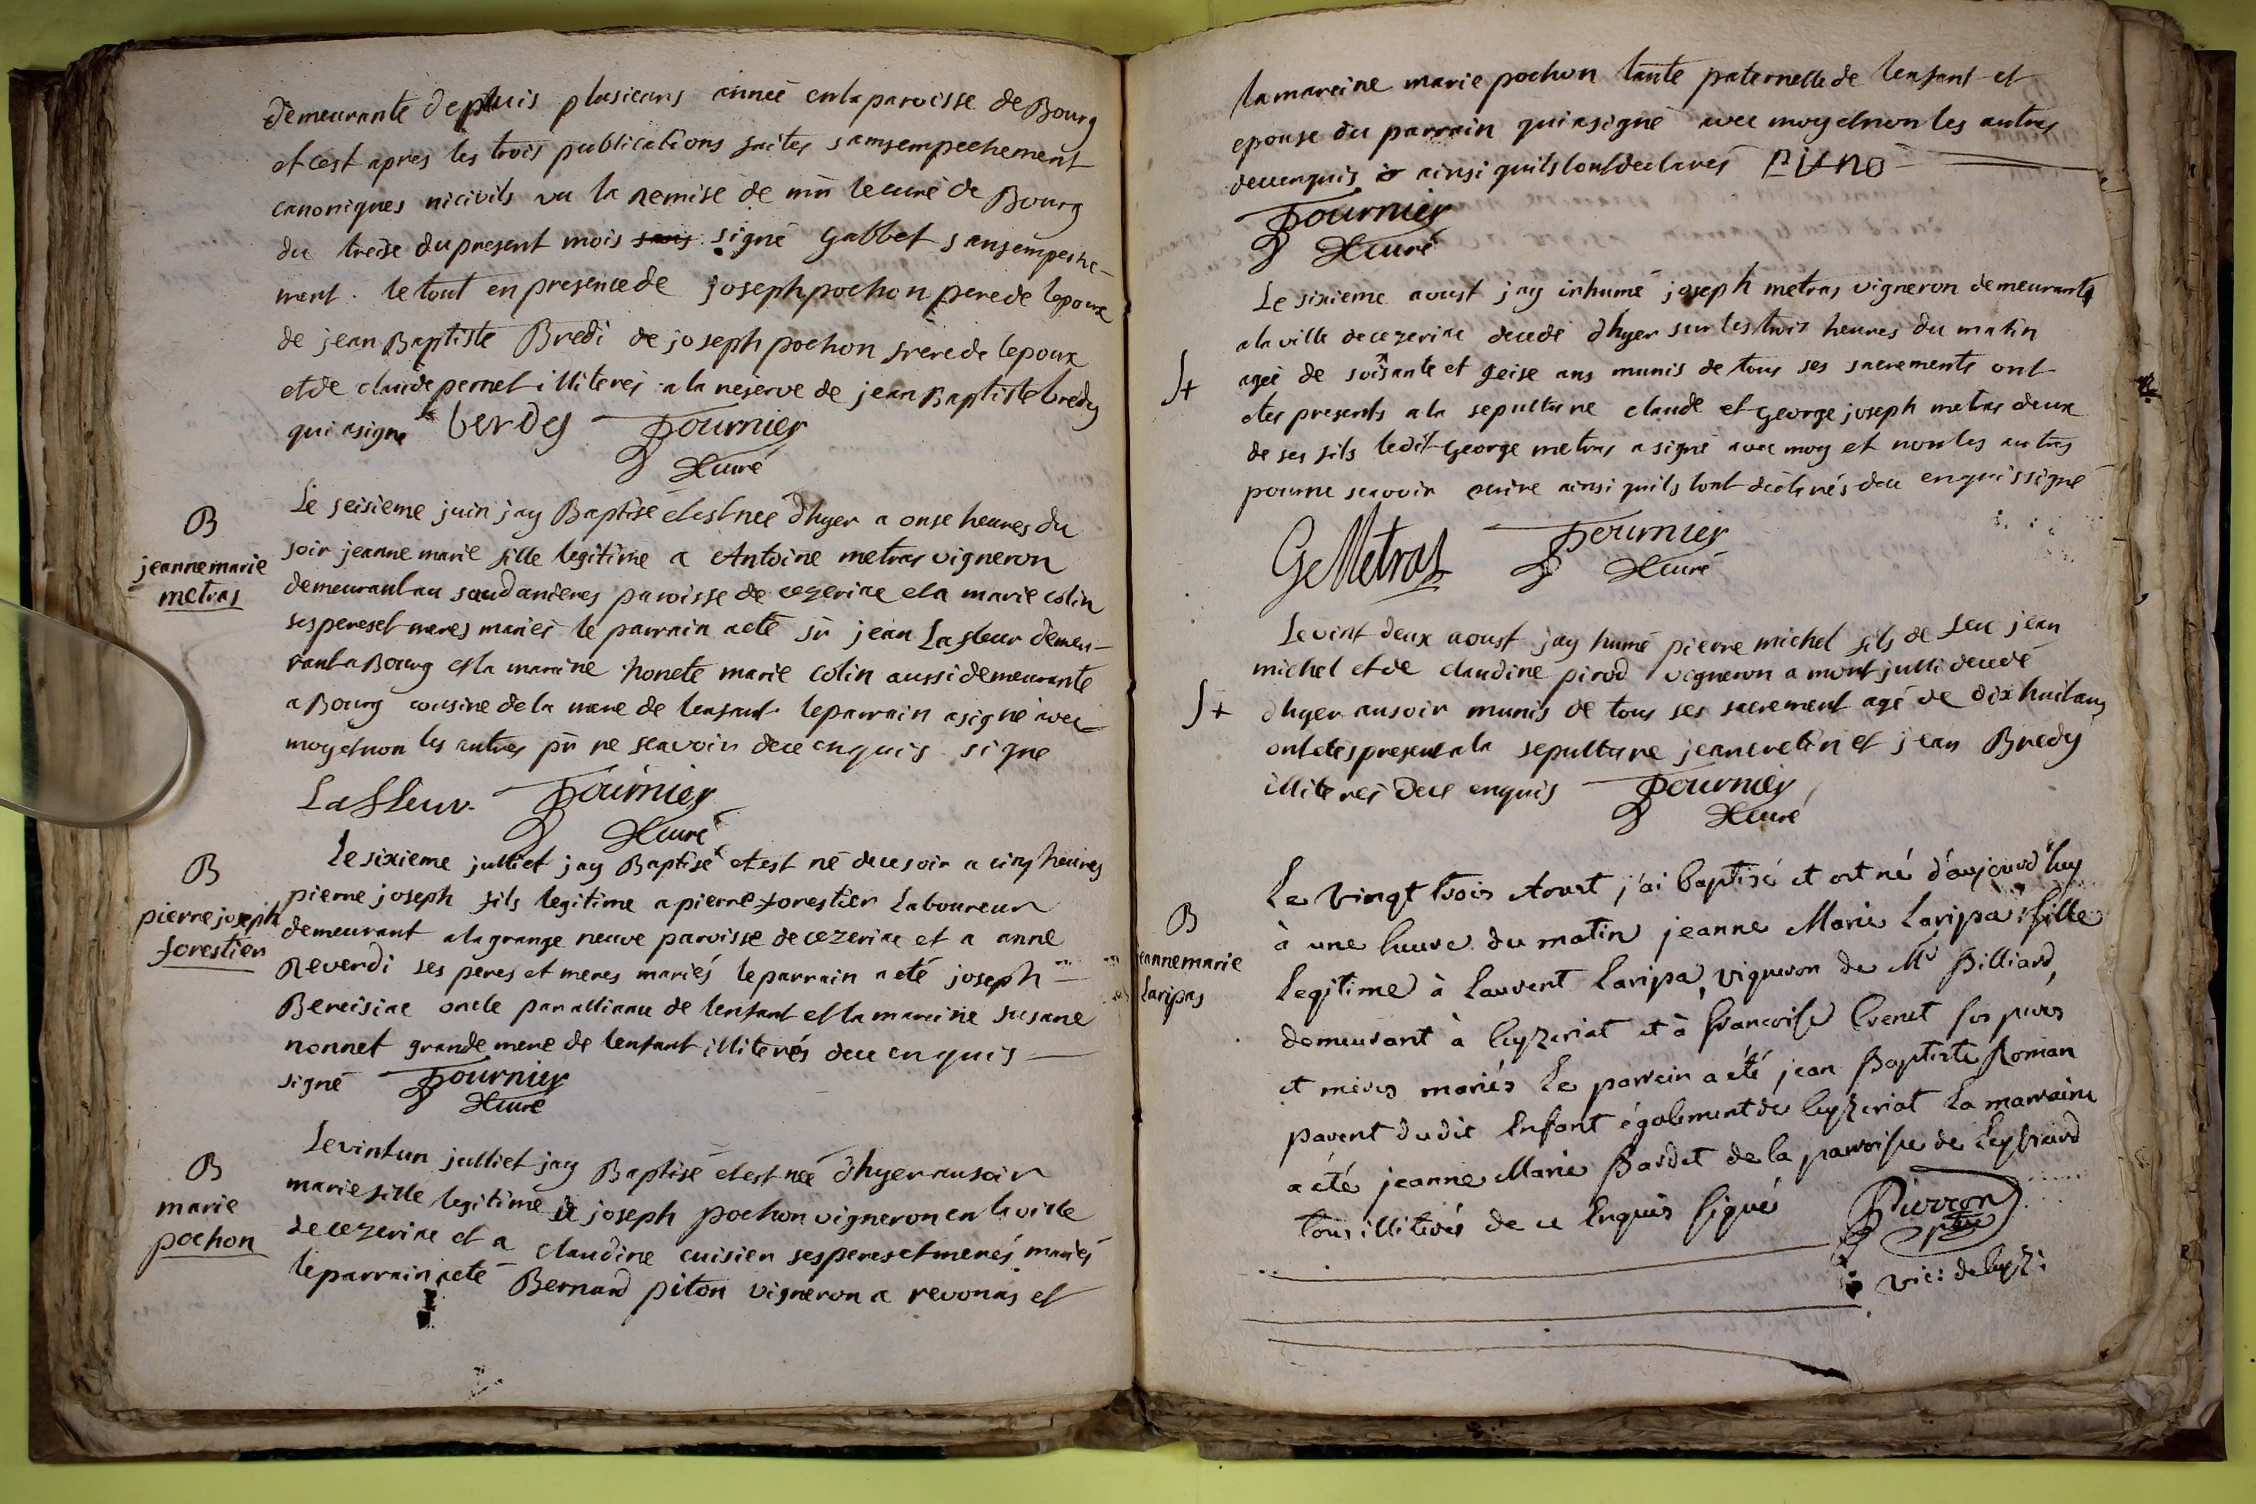 demeurante depuis plusieurs anneé en la paroisse de Bourg
et cest apres les trois publications faites sans empechement
canoniques ni civils vu la remise de mr le curé de Bourg
du treise du present mois sans signé Gabbet sans empeche-
ment . le tout en presence de joseph pochon pere de lepoux
de jean Baptiste Bredi de joseph pochon frere de lepoux
et de claude pernet illiteres a la reserve de jean Baptiste bredy
qui a signe berdej fournier
curé
B
jeanne marie
metras
Le seisieme juin jay Baptisé et est neé dhyer a onse heures du
soir jeanne marie fille legitime a Antoine metras vigneron
demeurant au soudanieres paroisse de cezeriac et a marie colin
ses peres et meres mariés le parrain a eté sr jean Lafleur demeu-
rant a Bourg et la maraine honete marie colin aussi demeurante
a Bourg cousine de la mere de lenfant le parrain a signé avec
moy et non les autres pr ne scavoir de ce enquis signe
Lafleur. fournier
curé
B
pierre joseph
forestier
Le sixieme julliet jay Baptisé et est né du ce soir a cinq heures
pierre joseph fils legitime a pierre forestier Laboureur
demeurant a la grange neuve paroisse de cezeriac et a anne
Reverdi ses peres et meres mariés le parrain a eté joseph
Bereisiac oncle par alliance de lenfant et la maraine susane
nonnet grande mere de lenfant illiterés de ce enquis
signé fournier
curé
B
marie
pochon
Le vint un julliet jay Baptisé et est neé dhyer au soir
marie fille legitime de joseph pochon vigneron en la ville
de cezeriac et a claudine cuisier ses peres et merés mariés
le parrain a eté Bernard piton vigneron a revonas et
la mareine marie pochon tante paternelle de lenfant et
epouse du parrain qui a signé avec moy et non les autres
de ce enquis ainsi quils lont declarés
fournier
curé
St
Le sixieme aoust jay inhumé joseph metras vigneron demeurant
a la ville de cezeriac decedé dhyer sur les trois heures du matin
ageé de soixante et seise ans munis de tous ses sacrements ont
etes presents a la sepulture claude et George joseph metras deux
de ses fils ledit George metras a signé avec moy et non les autres
pour ne scavoir ecrire ainsi quils lont declarés de ce enquis signé
G Metras fournier
curé
St
Le vint deux aoust jay humé pierre michel fils de feu jean
michel et de claudine pirod vigneron a mont julli decedé
dhyer au soir munis de tous ses sacrement agé de dix huit ans
ont etés present a la sepulture jean cretin et jean Bredy
illiterés de ce enquis fournier
curé
B
jeanne marie
Laripas
Le vingt trois Aoust j'ai baptisé et est né d'aujourd'huy
à une heure du matin jeanne Marie Laripa fille
Legitime à Laurent Laripa, vigneron de Mr Billiard,
demeurant à Ceyzeriat et à francoise Evenet ses peres
et meres mariés Le parrein a été jean Baptiste Roman
parent dudit Enfant également de Ceyzeriat La marraine
a été jeanne Marie Bardet de la parroisse de
tous illiterés de ce Enquis signés Pierron
ptre
vic: de Ceyz: